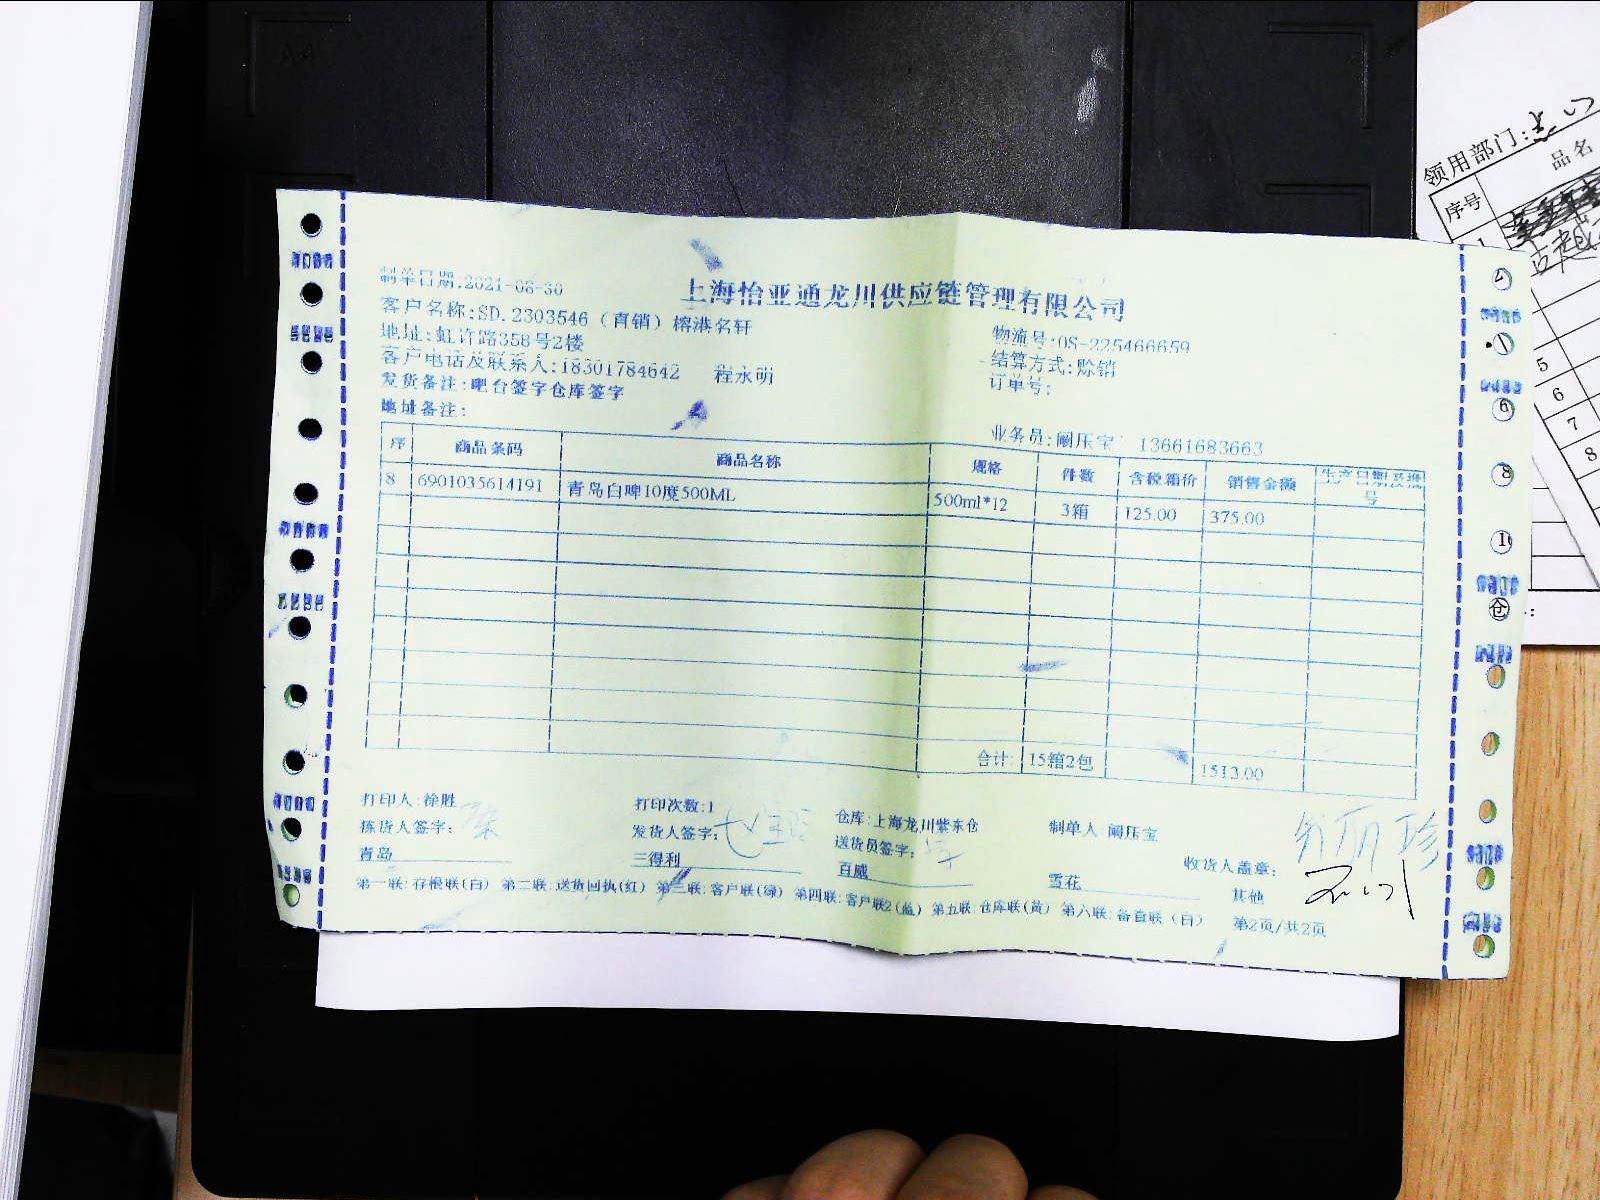 上海怡亚通龙川供应链管理有限公司
制单日期:2021-06-30
客户名称:SD.2303546（直销）榕港名轩
物流号:OS-225466659
地址:虹许路358号2楼
结算方式:赊销
客户电话及联系人:18301784642 程永明
订单号:
发货备注:吧台签字仓库签字
地址备注:
业务员:阚压宝 13661683663
序 商品条码 商品名称 规格 件数 含税箱价 销售金额 生产日期及批号
8 6901035614191 青岛白啤10度500ML 500ml*12 3箱 125.00 375.00
合计: 15箱2包 1513.00
打印人:徐胜 打印次数:1 仓库:上海龙川紫东仓 制单人 阚压宝
拣货人签字: 发货人签字: 送货员签字: 收货人盖章:
青岛 三得利 百威 雪花 其他
第一联:存根联(白) 第二联:送货回执(红) 第三联:客户联(绿) 第四联:客户联2(蓝) 第五联:仓库联(黄) 第六联:备查联（白） 第2页/共2页
领用部门:
序号 品名
5
6
7
8
仓